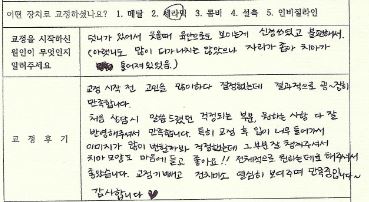 어떤 장치로 교정하셨나요? 1. 메탈 2. 세라믹 3. 콤비 4. 설측 5. 인비절라인
교정을 시작하신
원인이 무엇인지
알려주세요
덧니가 있어서 웃을때 육안으로도 보이는게 신경쓰였고 불편해서.
(아랫니도 많이 삐가나지는 않았으나 자리가 좁아 치아가
들어져있었음.)
교정 후기
교정 시작 전 고민을 많이하다 결정했는데 결과적으로 굉~장히
만족합니다.
처음 상담시 말씀드렸던 걱정되는 부분, 원하는 사항 다 잘
반영해주셔서 만족합니다. 특히 교정 후 입이 너무 들어가서
이미지가 많이 변할까봐 걱정했는데 그 부분 잘 잡아주셔서
치아 모양도 마음에 들고 좋아요!! 전체적으로 원하는대로 해주셔서
좋았습니다. 교정기 빼고 전치미소 열심히 보여주며 만족중입니다~
감사합니다 ♥